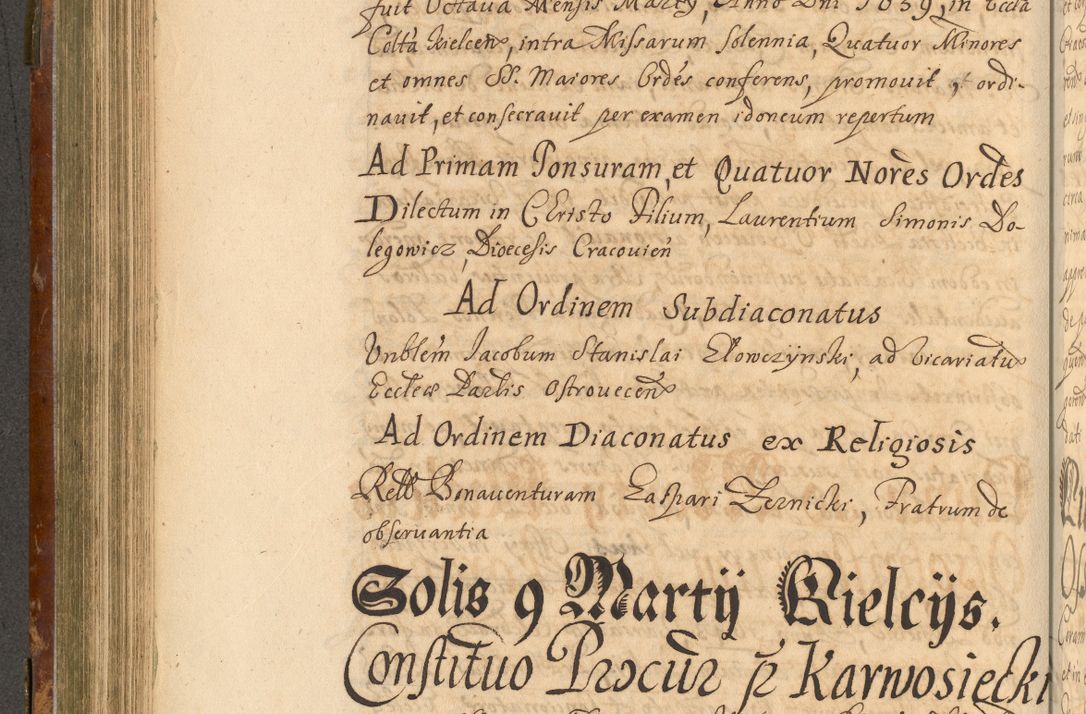 fuit Octava Mensis Martÿ, Anno Dni 1659, in Eccla
Colta Kielcen, intra Missarum solennia, Quatuor Minores
et omnes SS. Maiores Ordes conferens, promovit, et ordi-
navit, et consecravit per examen idoneum repertum
Ad Primam Tonsuram, et Quatuor Nores Ordes
Dilectum in Christo Filium, Laurentium Simonis Do-
legowicz, Dioecesis Cracovien
Ad Ordinem Subdiaconatus
Vnblem Jacobum Stanislai Ełowczÿnski, ad vicariatu
Ecclew Parlis Ostrovecen
Ad Ordinem Diaconatus ex Religiosis
Bonaventuram Gaspari Zernicki, Fratrum de
observantia
Solis 9 Martÿ Kielcÿs.
Constituo Procur p Karwosiecki